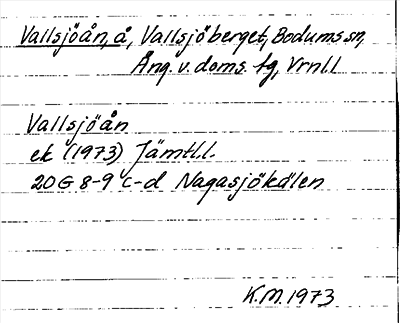 Vallsjöån, å, Vallsjöberget, Bodums sn,
Ång. v. doms. fg, Vrnll
Vallsjöån
ek (1973) Jämtl.l.
20G 8-9 c-d Nagasjökälen
K.M. 1973